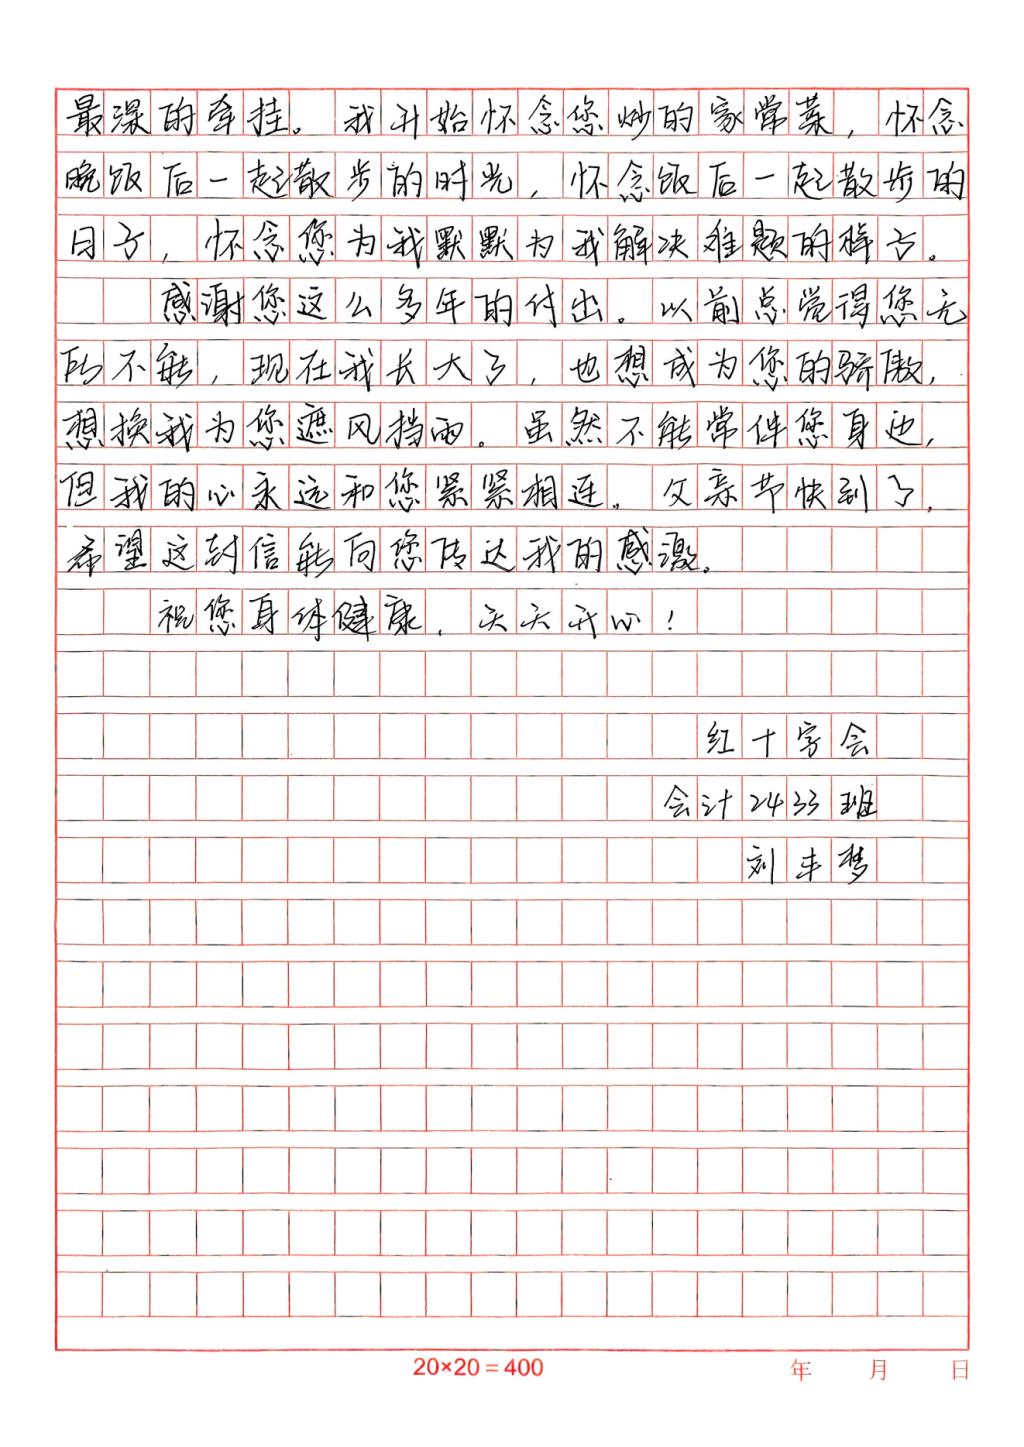 最深的牵挂。我开始怀念您炒的家常菜，怀念
晚饭后一起散步的时光，怀念饭后一起散步的
日子，怀念您为我默默为我解决难题的样子。
感谢您这么多年的付出。以前总觉得您无
所不能，现在我长大了，也想成为您的骄傲，
想换我为您遮风挡雨。虽然不能常伴您身边，
但我的心永远和您紧紧相连。父亲节快到了，
希望这封信能向您传达我的感激。
祝您身体健康，天天开心！
红十字会
会计2433班
刘丰梦
20×20=400 年 月 日